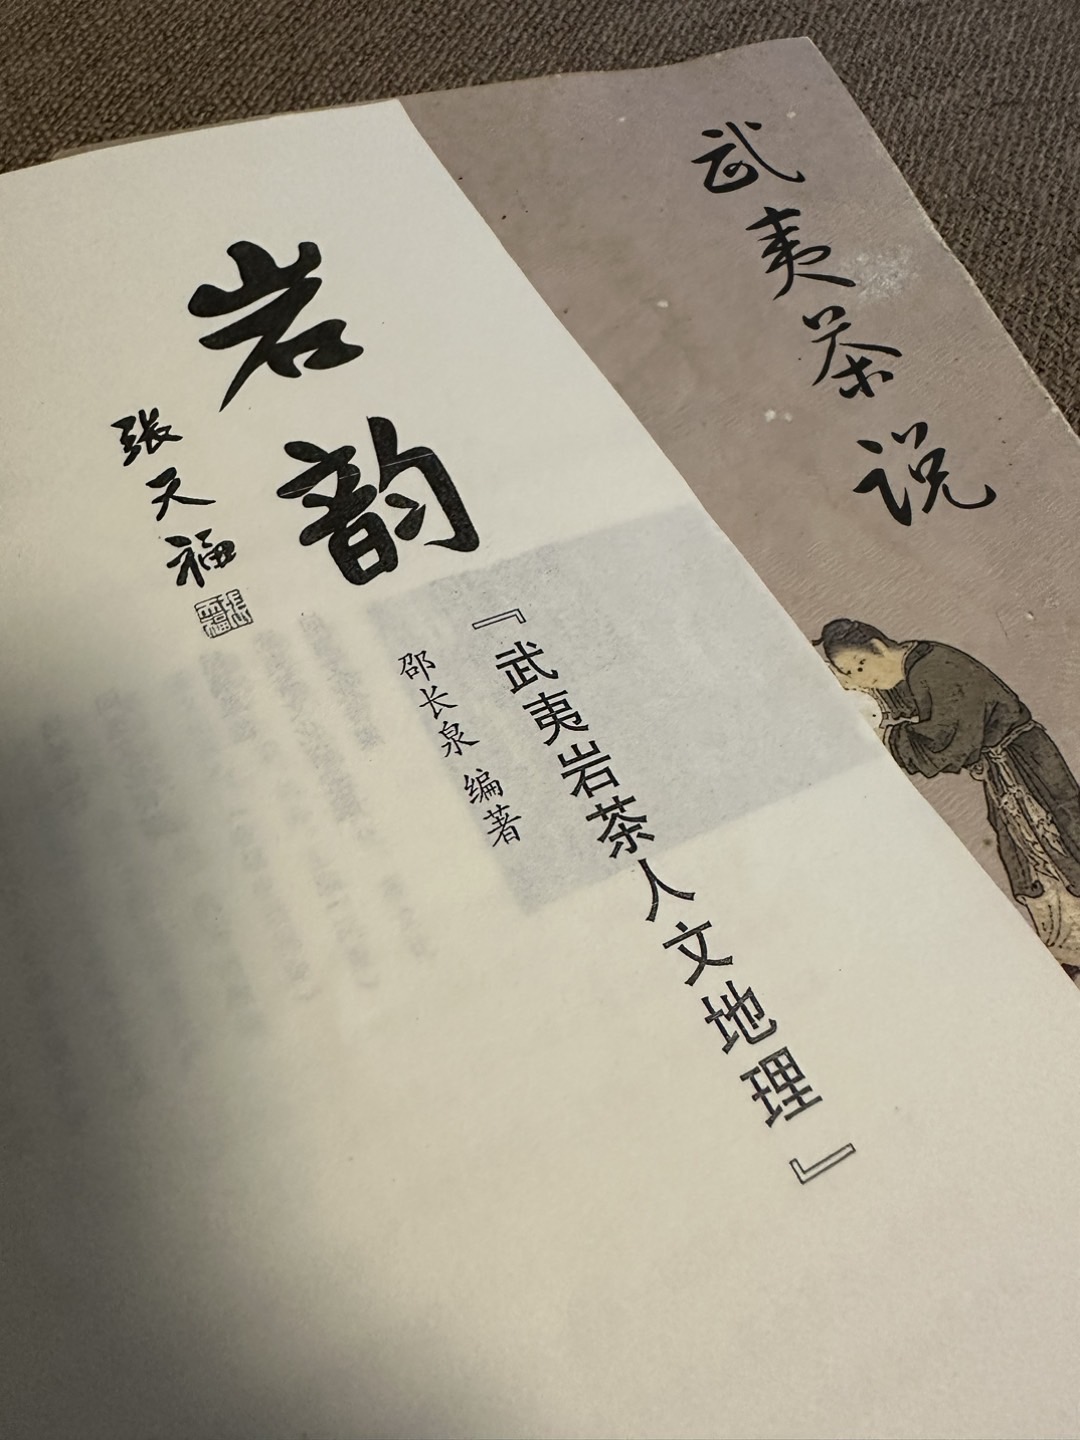 武夷茶说
岩韵
张天福
『武夷岩茶人文地理』
邵长泉 编著